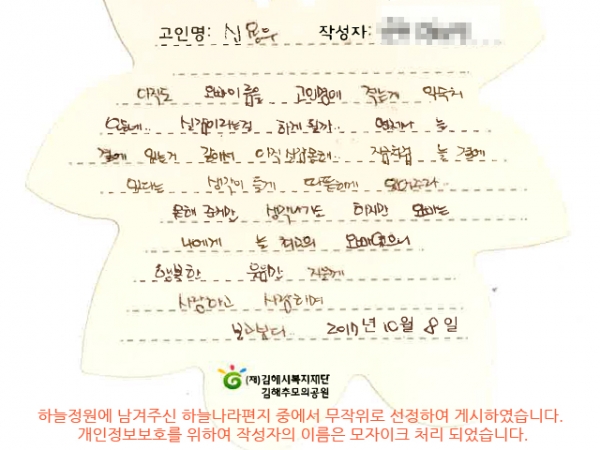 고인명: 신용우 작성자:
아직도 오빠이름을 고인명에 적는게 익숙치
않네.. 실감이라는걸 하게 될까.. 언제나 늘
곁에 있는거 같아서 아직 실감못해.. 지금처럼 늘 곁에
있다는 생각이 들게 따뜻하게
못해 준게만 생각나기도 하지만 오빠는
나에게 늘 최고의 오빠였으니
행복한 웃음만 지을게
사랑하고 사랑하며
보고싶다.. 2017년 10월 8일
(재)김해시복지재단
김해추모의공원
하늘정원에 남겨주신 하늘나라편지 중에서 무작위로 선정하여 게시하였습니다.
개인정보보호를 위하여 작성자의 이름은 모자이크 처리 되었습니다.